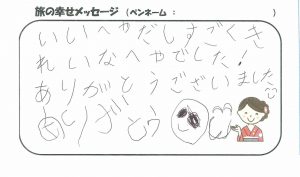 旅の幸せメッセージ (ペンネーム : )
いいへやだしすごくき
れいなへやでした!
ありがとうございました